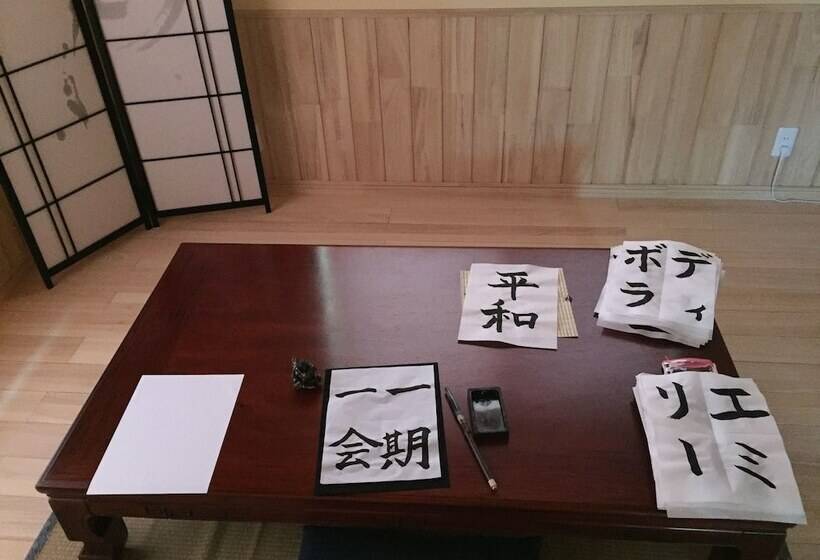 平和
ディ
ボラー
一期
一会
エミ
リー